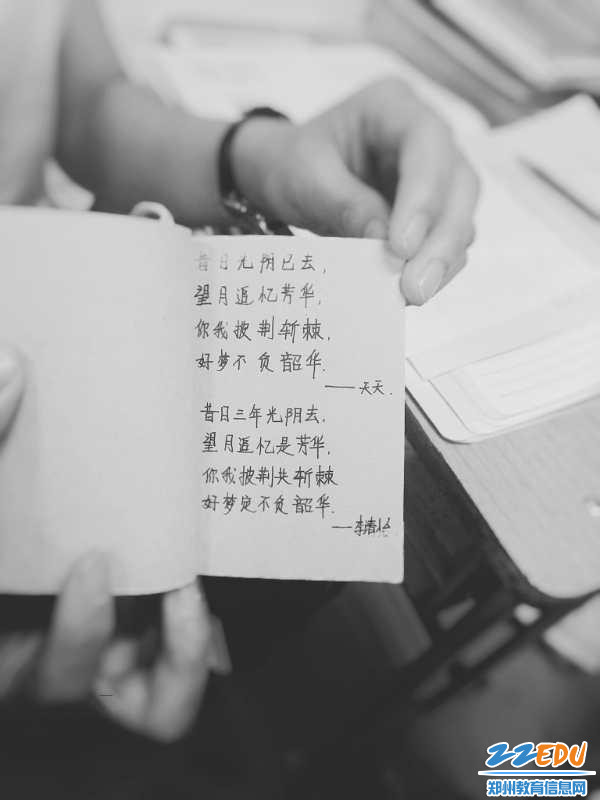 昔日光阴已去，
望月追忆芳华，
你我披荆斩棘，
好梦不负韶华．
——天天．
昔日三年光阴去，
望月追忆是芳华，
你我披荆共斩棘
好梦定不负韶华．
——李春怡
22EDU
郑州教育信息网